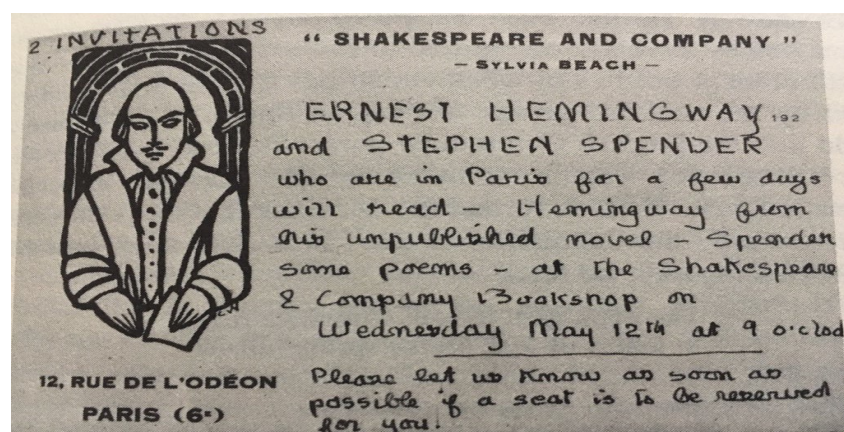 2 INVITATIONS
“ SHAKESPEARE AND COMPANY ”
— SYLVIA BEACH —
ERNEST HEMINGWAY 192
and STEPHEN SPENDER
who are in Paris for a few days
will read - Hemingway from
his unpublished novel - Spender
some poems - at the Shakespeare
& Company Bookshop on
Wednesday May 12th at 9 o'cloc
Please let us know as soon as
possible if a seat is to be reserved
for you.
12, RUE DE L'ODÉON
PARIS (6e)